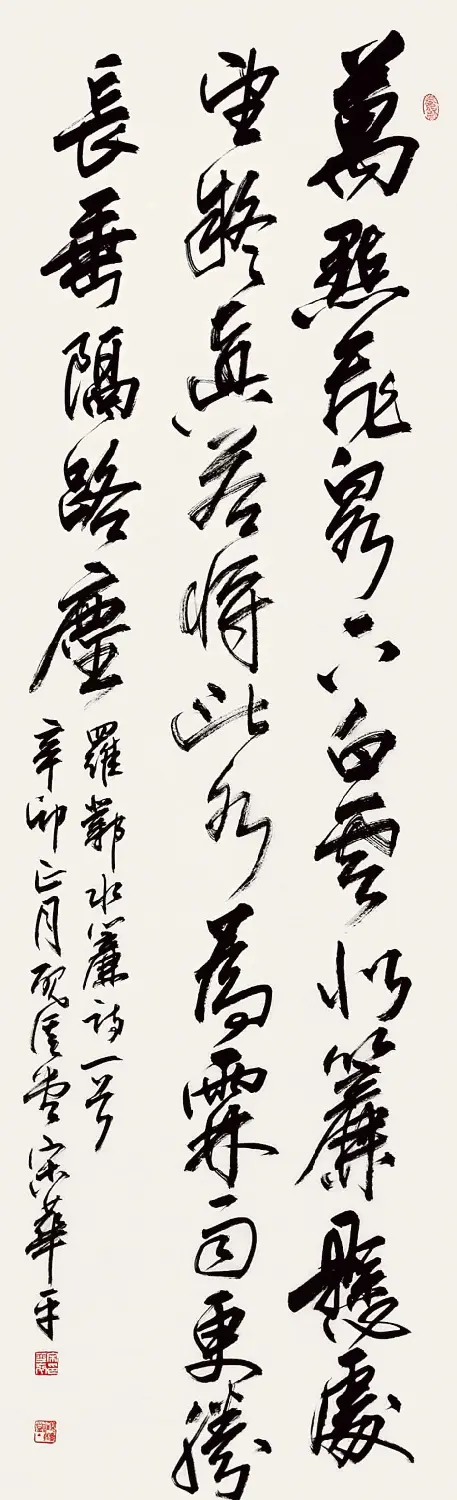 萬點飛泉下白雲似簾懸處
望疑真若將此水為霖雨更勝
長垂隔路塵
羅鄴水簾詩一首
辛卯正月 宋華平